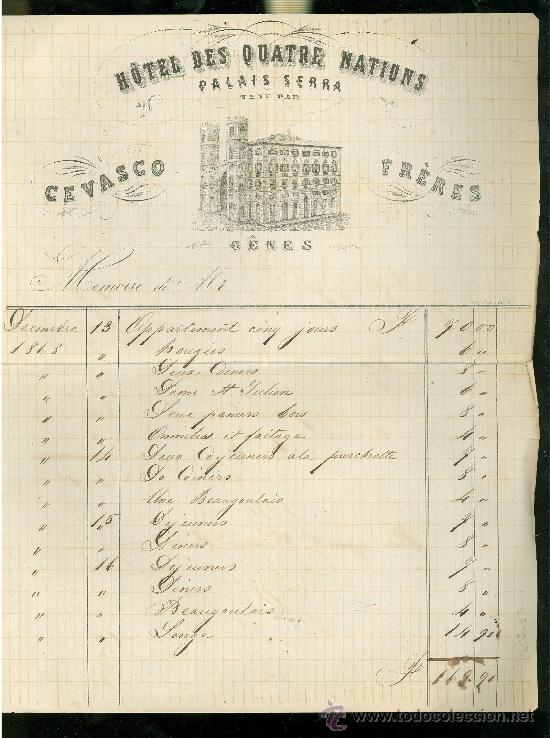 HÔTEL DES QUATRE NATIONS
PALAIS SERRA
TENU PAR
CEVASCO FRÈRES
GÊNES
Memoire de Mr
Decembre 13 Appartement cinq jours F 70 00
1863 " Bougies 6 "
" " Deux Diners 8 "
" " Demi St Julien 6 "
" " Deux paniers bois 8 "
" " Omnibus et 4 "
" 14 Deux Dejeuners a la 7 "
" " Do Diners 8 "
" " Une Beaugoulais 4 "
" 15 Dejeuners 7 "
" " Diners 8 "
" 16 Dejeuners 7 "
" " Diners 8 "
" " Beaugoulais 4 "
" " 14 90
F 169.90
todocoleccion
www.todocoleccion.net